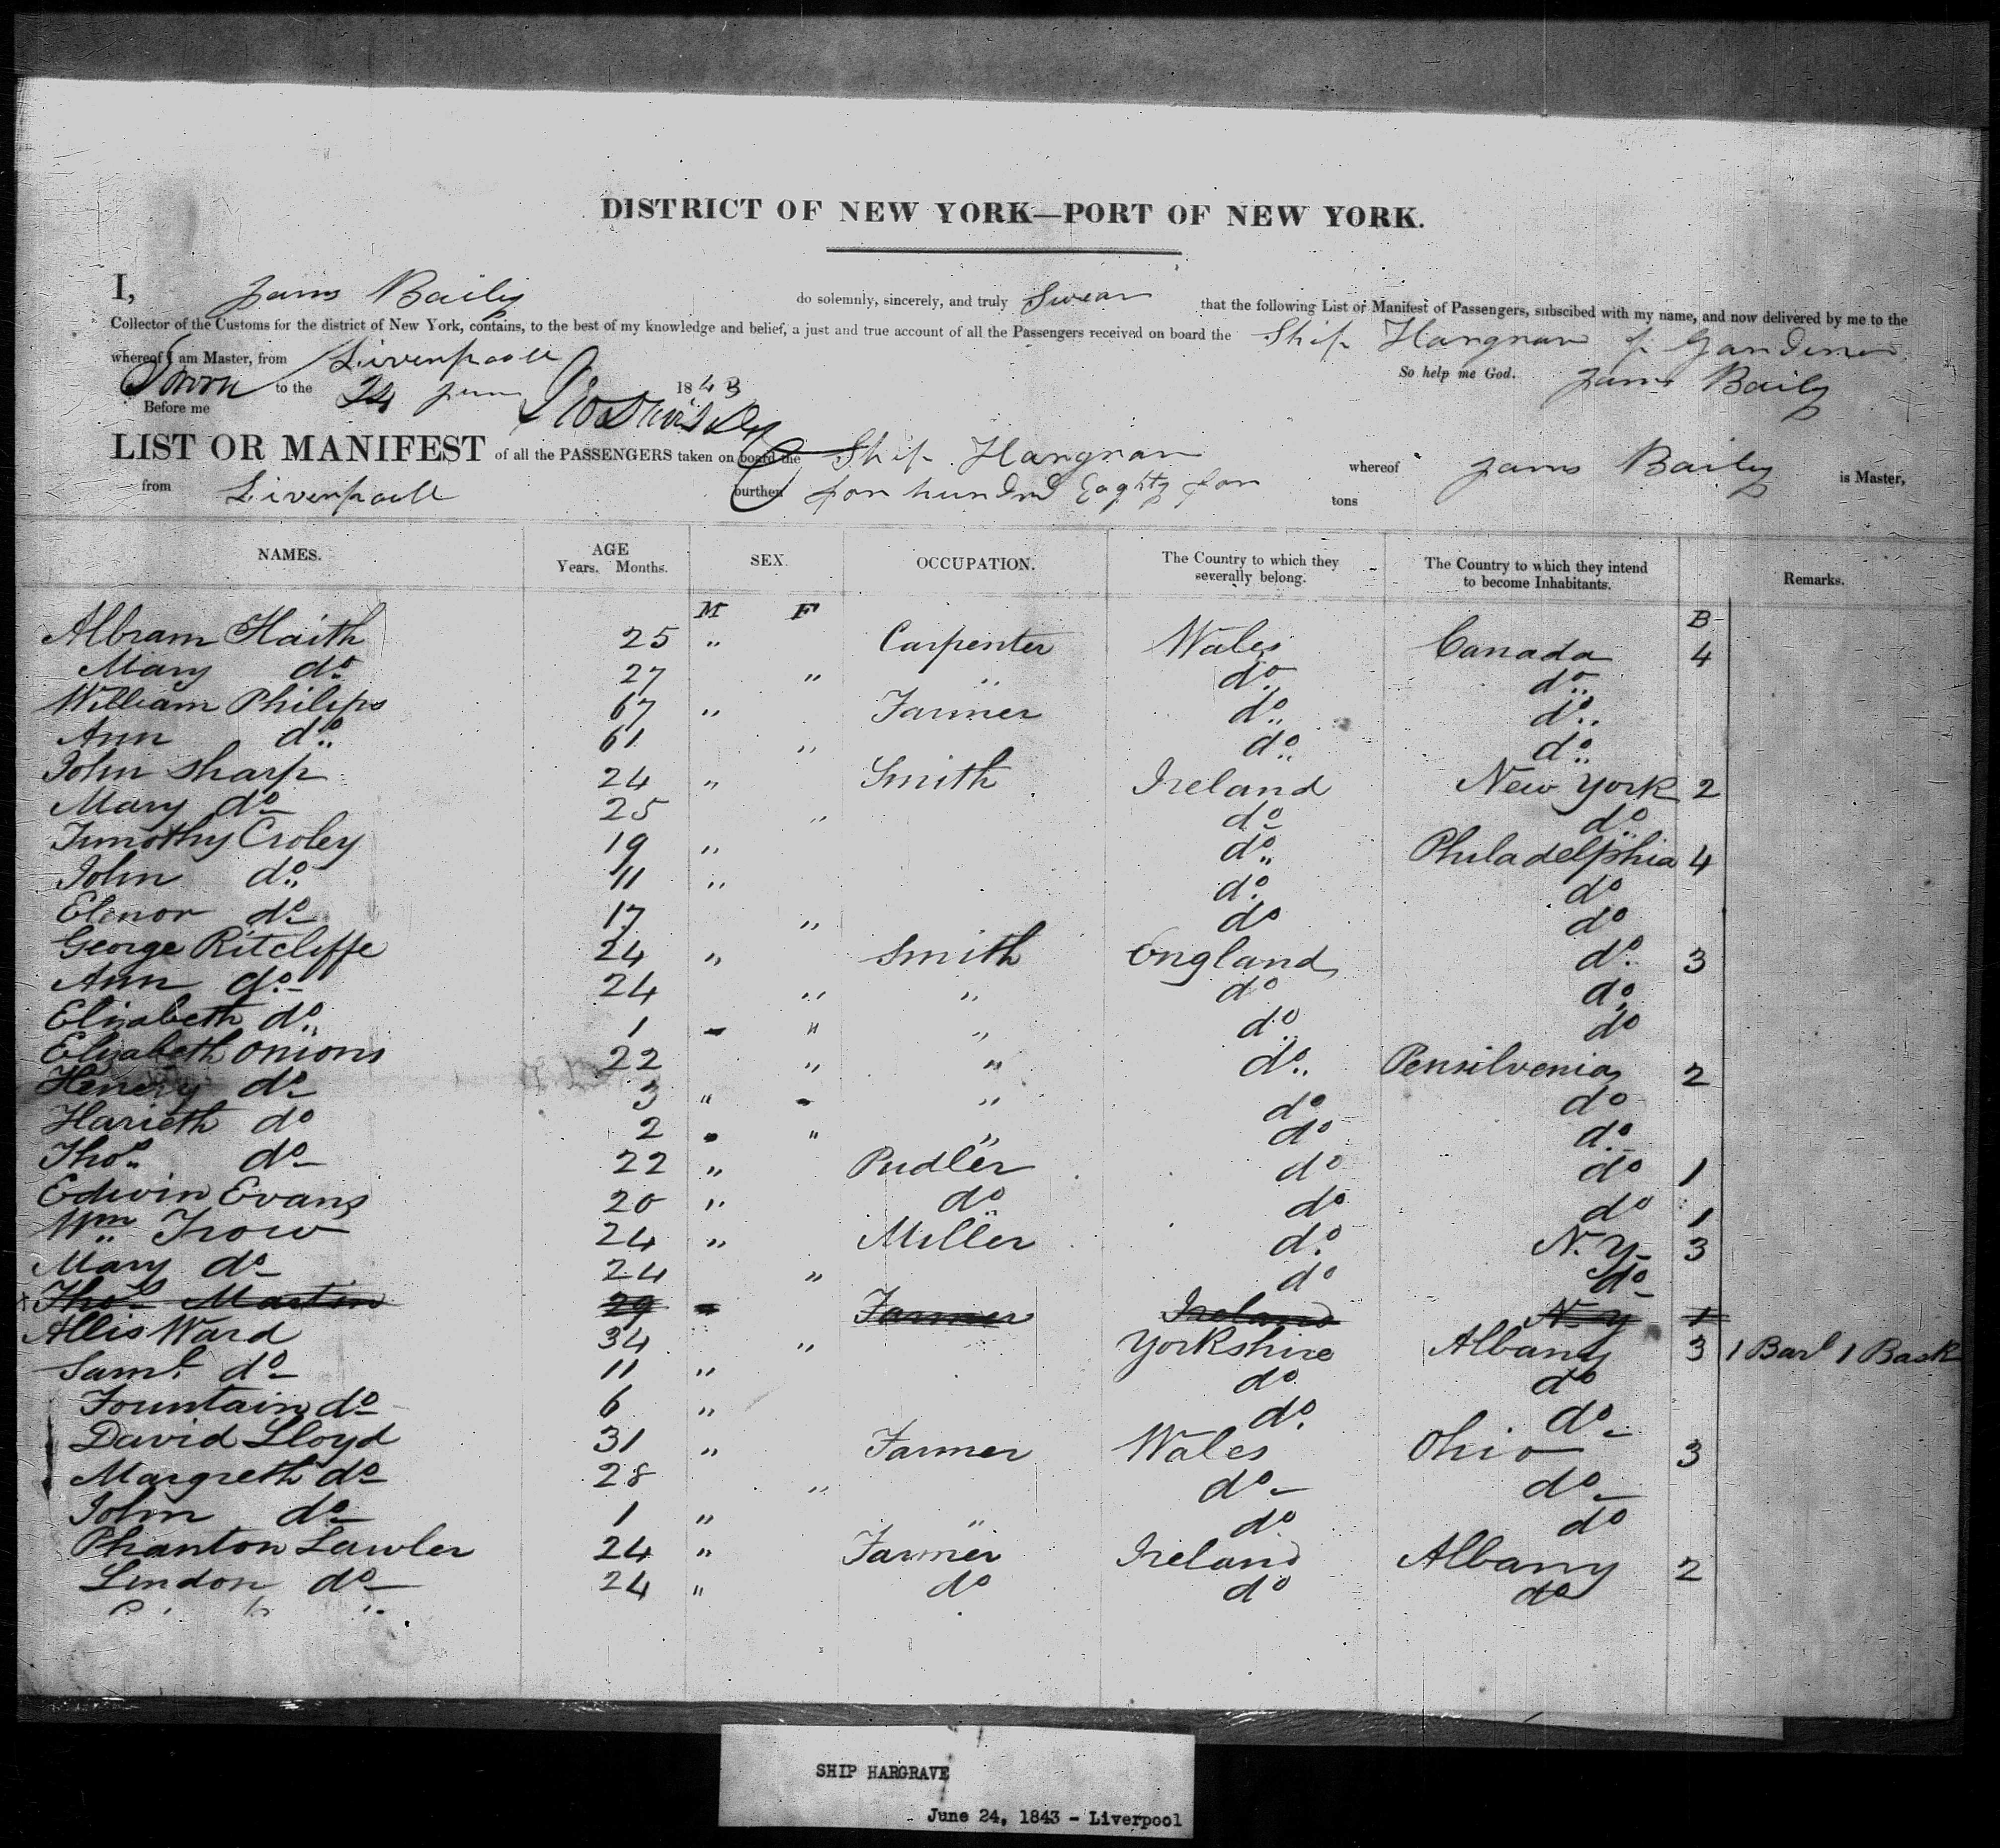 DISTRICT OF NEW YORK—PORT OF NEW YORK.
I, James Baily do solemnly, sincerely, and truly Swear that the following List or Manifest of Passengers, subscibed with my name, and now delivered by me to the
Collector of the Customs for the district of New York, contains, to the best of my knowledge and belief, a just and true account of all the Passengers received on board the Ship Hargrave of
whereof I am Master, from Liverpooll
So help me God. James Baily
Sworn to the 24 June 1843
Before me
LIST OR MANIFEST of all the PASSENGERS taken on board the Ship Hargrave whereof James Baily is Master,
from Liverpooll burthen hundred Eaghty tons
NAMES. AGE SEX. OCCUPATION. The Country to which they severally belong. The Country to which they intend to become Inhabitants. Remarks.
Years. Months.
M F B
Albram Haith 25 " Carpenter Wales Canada 4
Mary do 27 " " do do
William Philips 67 " Farmer do do
Ann do 61 " do do
John Sharp 24 " Smith Ireland New York 2
Mary do 25 " do do
Timothy Croley 19 " do Philadelphia 4
John do 11 " do do
Elenor do 17 " do do
George Ritcliffe 24 " Smith England do 3
Ann do 24 " " do do
Elizabeth do 1 - " " do do
Elizabeth Onions 22 " " do Pensilvenia 2
Henery do 3 " - " do do
Harieth do 2 - " " do do
Thos do 22 " Pudler do do 1
Edwin Evans 20 " do do do 1
Wm Trow 24 " Miller do N.Y. 3
Mary do 24 " do do
Thos Martin 29 - Farmer Ireland N.Y 1
Allis Ward 34 " Yorkshire Albany 3 1 Barl 1 Bask
Saml do 11 " do do
Fountain do 6 " do do
David Lloyd 31 " Farmer Wales Ohio 3
Margreth do 28 " do do
John do 1 " " do do
Phanton Lawler 24 " Farmer Ireland Albany 2
Lindon do 24 " do do do
SHIP HARGRAVE
June 24, 1843 - Liverpool